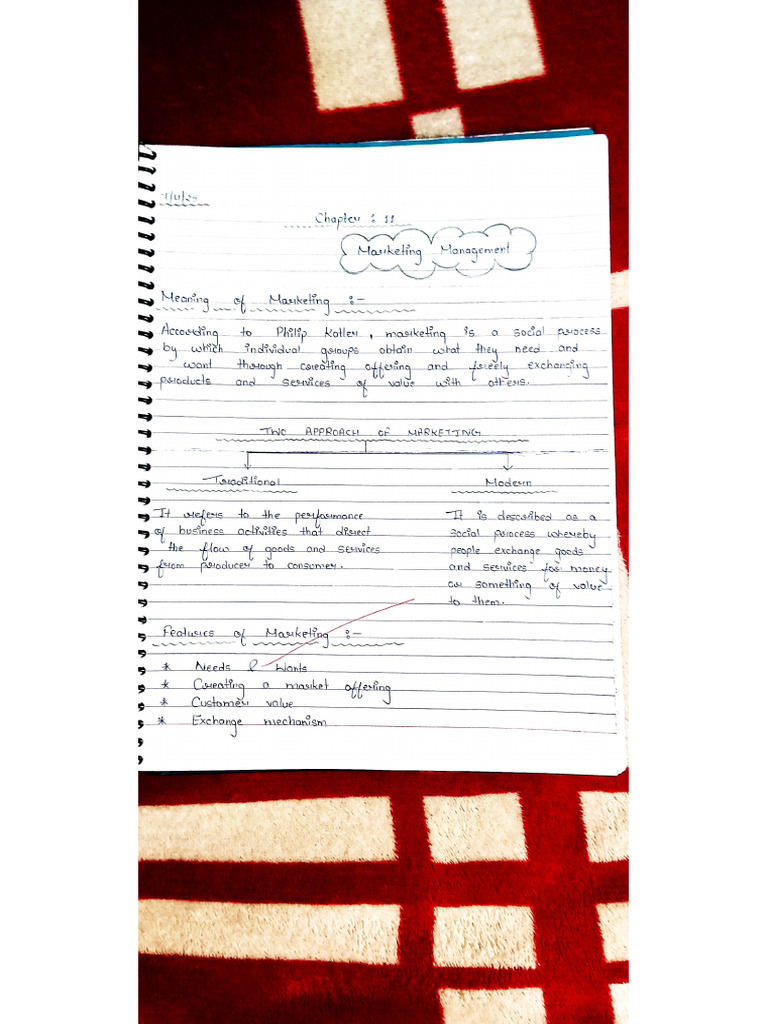 Chapter : 11
Marketing Management
Meaning of Marketing :-
According to Philip Kotler, marketing is a social process
by which individual groups obtain what they need and
want through creating offering and freely exchanging
products and services of value with others.
TWO APPROACH OF MARKETING
Traditional
It refers to the performance
of business activities that direct
the flow of goods and services
from producer to consumer.
Modern
It is described as a
social process whereby
people exchange goods
and services for money
or something of value
to them.
Features of Marketing :-
* Needs & Wants
* Creating a market offering
* Customer value
* Exchange mechanism